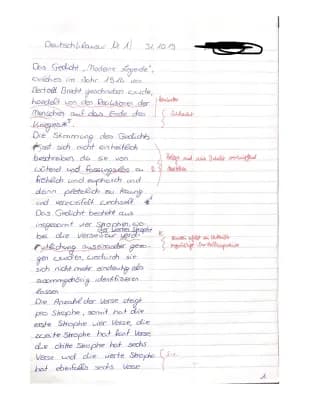 Deutschklausur Nr. 1 31.10.19
Das Gedicht „Moderne Legende",
welches im Jahr 1914 von
Bertolt Brecht geschrieben wurde,
handelt von den Reaktionen der
Menschen auf das Ende des
Krieges
Die Stimmung des Gedichts
lässt sich nicht einheitlich
beschreiben, da sie von
wütend und fassungslos zu
fröhlich und euphorisch und
dann plötzlich zu traurig
und verzweifelt wechselt.
Das Gedicht besteht aus
insgesamt vier Strophen, wo-
der vierten Strophe
bei die Verse zur Verd-
eutlichung auseinander gezo-
gen wurden, wodurch sie
sich nicht mehr eindeutig als
zusammengehörig identifizieren
lassen
Die Anzahl der Verse steigt
pro Strophe, somit hat die
erste Strophe vier Verse, die
zweite Strophe hat fünf Verse
die dritte Strophe hat sechs
Verse und die vierte Strophe
hat ebenfalls sechs Verse
1